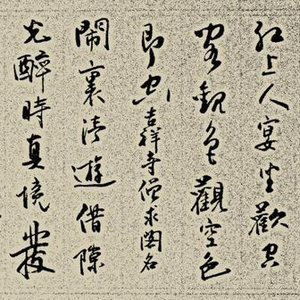 紅上人宴坐觀空
閣觀色觀空色
即空吉祥寺僧求閣名
鬧裏清遊借隙
光醉時真境發